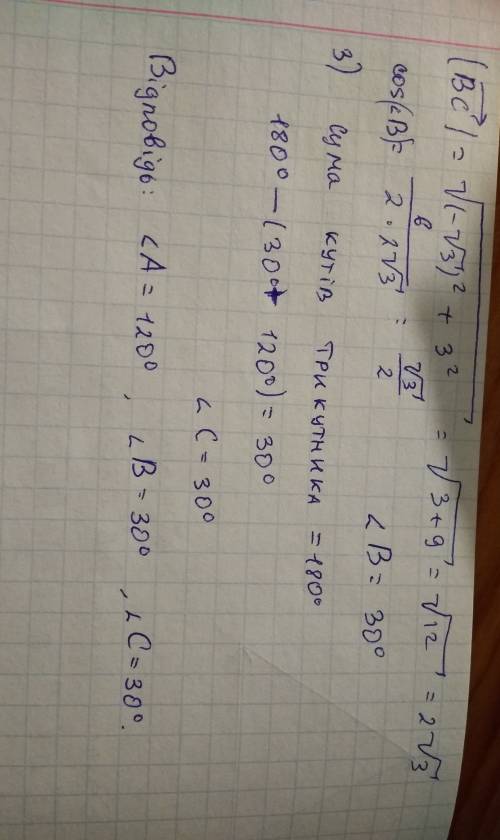 |BC⃗| = √((-√3)² + 3²) = √(3+9) = √12 = 2√3
cos(∠B) = 6/(2·2√3) = √3/2 ∠B = 30°
3) Сума кутів трикутника = 180°
180° - (30° + 120°) = 30°
∠C = 30°
Відповідь: ∠A = 120°, ∠B = 30°, ∠C = 30°.